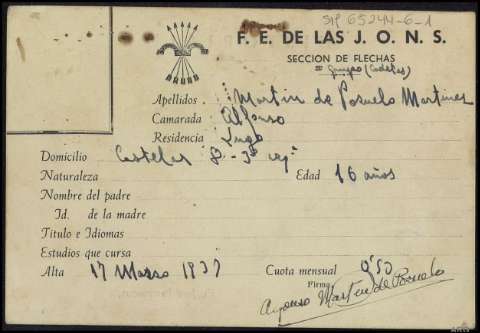 SIP 65244-6-1
F. E. DE LAS J. O. N. S.
SECCION DE FLECHAS
(Cadetes)
Apellidos Martin de Posuelo Martinez
Camarada Alfonso
Residencia Lugo
Domicilio Castelar 2 - 3º
Naturaleza Edad 16 años
Nombre del padre
Id. de la madre
Titulo e Idiomas
Estudios que cursa
Alta 17 Marzo 1937 Cuota mensual 0'50
Firma
Alfonso Martin de Posuelo